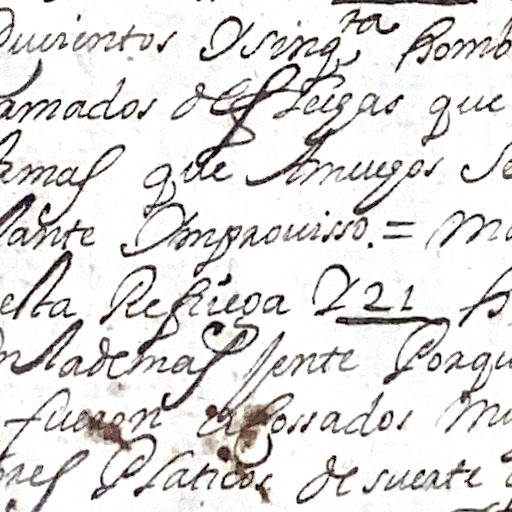 Ducientos Ysinq.ta homb
amados de fleigas que
amas que Amuegos Se
lante Ymprouisso. = Ma
elta Refriega 721 h
nlademas Jente Porqu
fueron acossados Mu
ores Platicos desuerte q